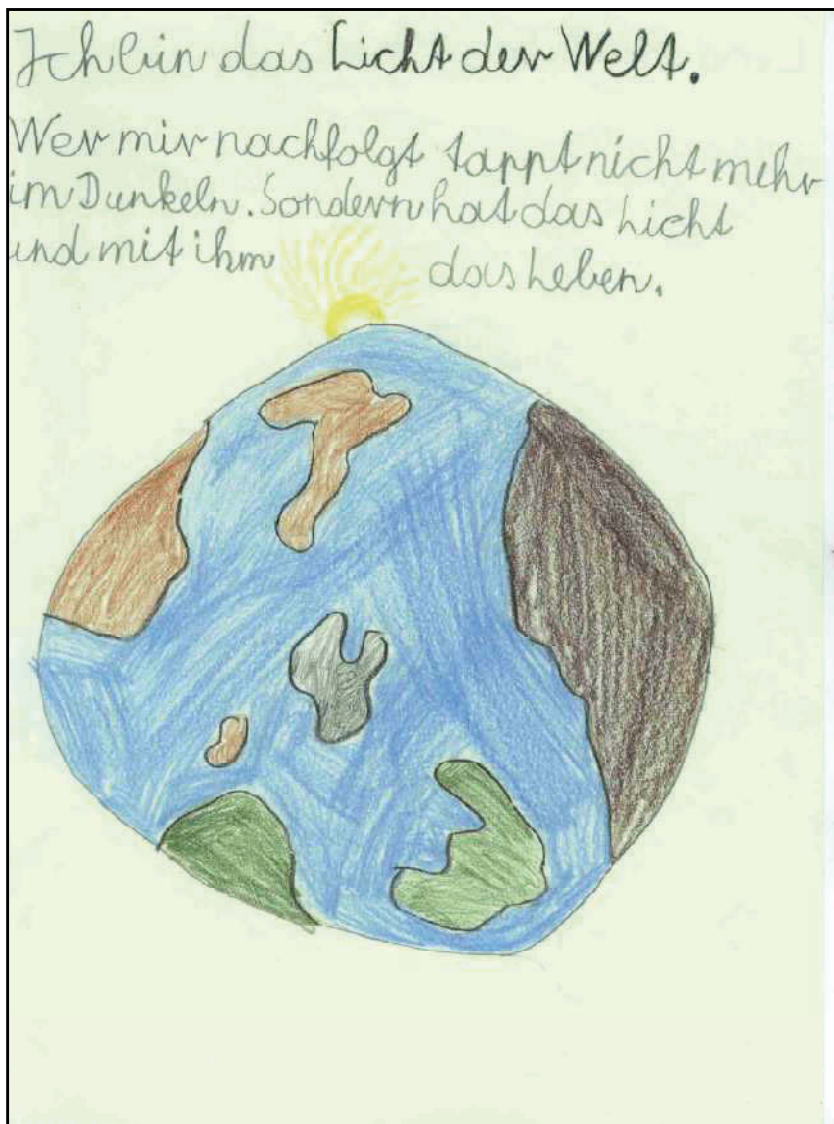 Ich bin das Licht der Welt.
Wer mir nachfolgt tappt nicht mehr
im Dunkeln. Sondern hat das Licht
und mit ihm das Leben.